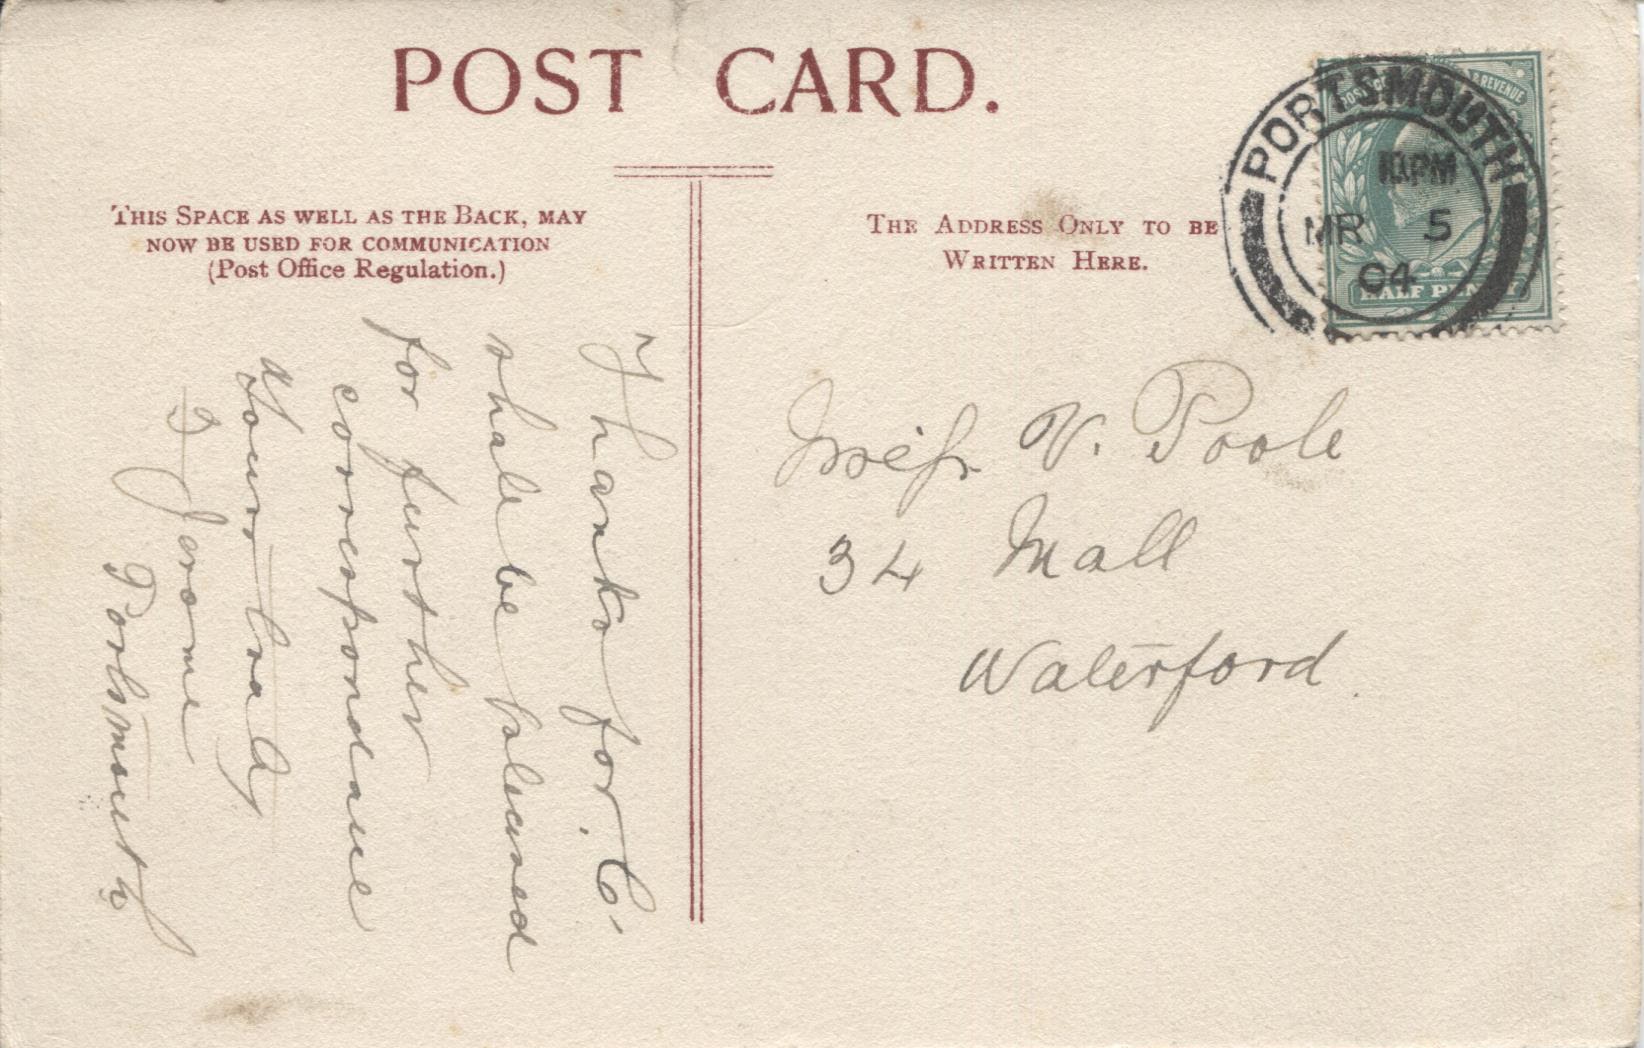 POST CARD.
THIS SPACE AS WELL AS THE BACK, MAY
NOW BE USED FOR COMMUNICATION
(Post Office Regulation.)
THE ADDRESS ONLY TO BE
WRITTEN HERE.
PORTSMOUTH
PM
MR 5
04
POSTAGE & REVENUE
HALF PENNY
Miss V. Poole
34 Mall
Waterford.
Thanks for. C.
shall be pleased
for further
correspondance
Yours
Jerome
Portsmouth